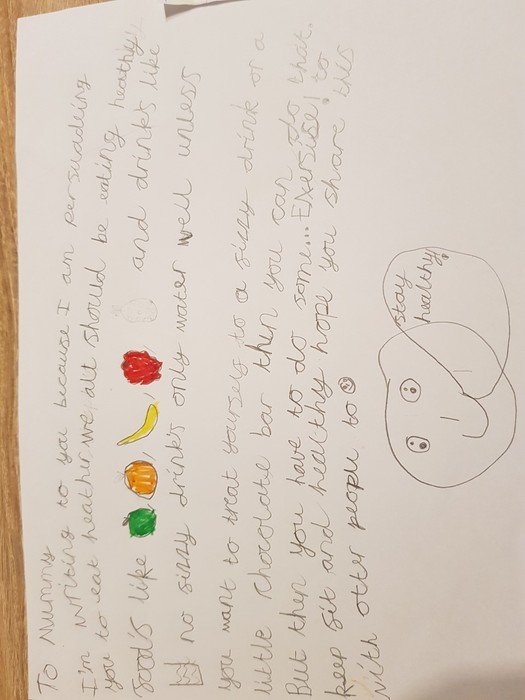 To Mummy
I'm writing to you because I am persuadeing
you to eat heather we all should be eating heathy,
foods like , , and drinks like
no sizzy drinks only water well unless
you want to treat yourself to a sizzy drink or a
little chocolate bar then you can do that.
But then you have to do some... Exersise! to
keep fit and healthy hope you share this
with otter people to
stay
healthy.